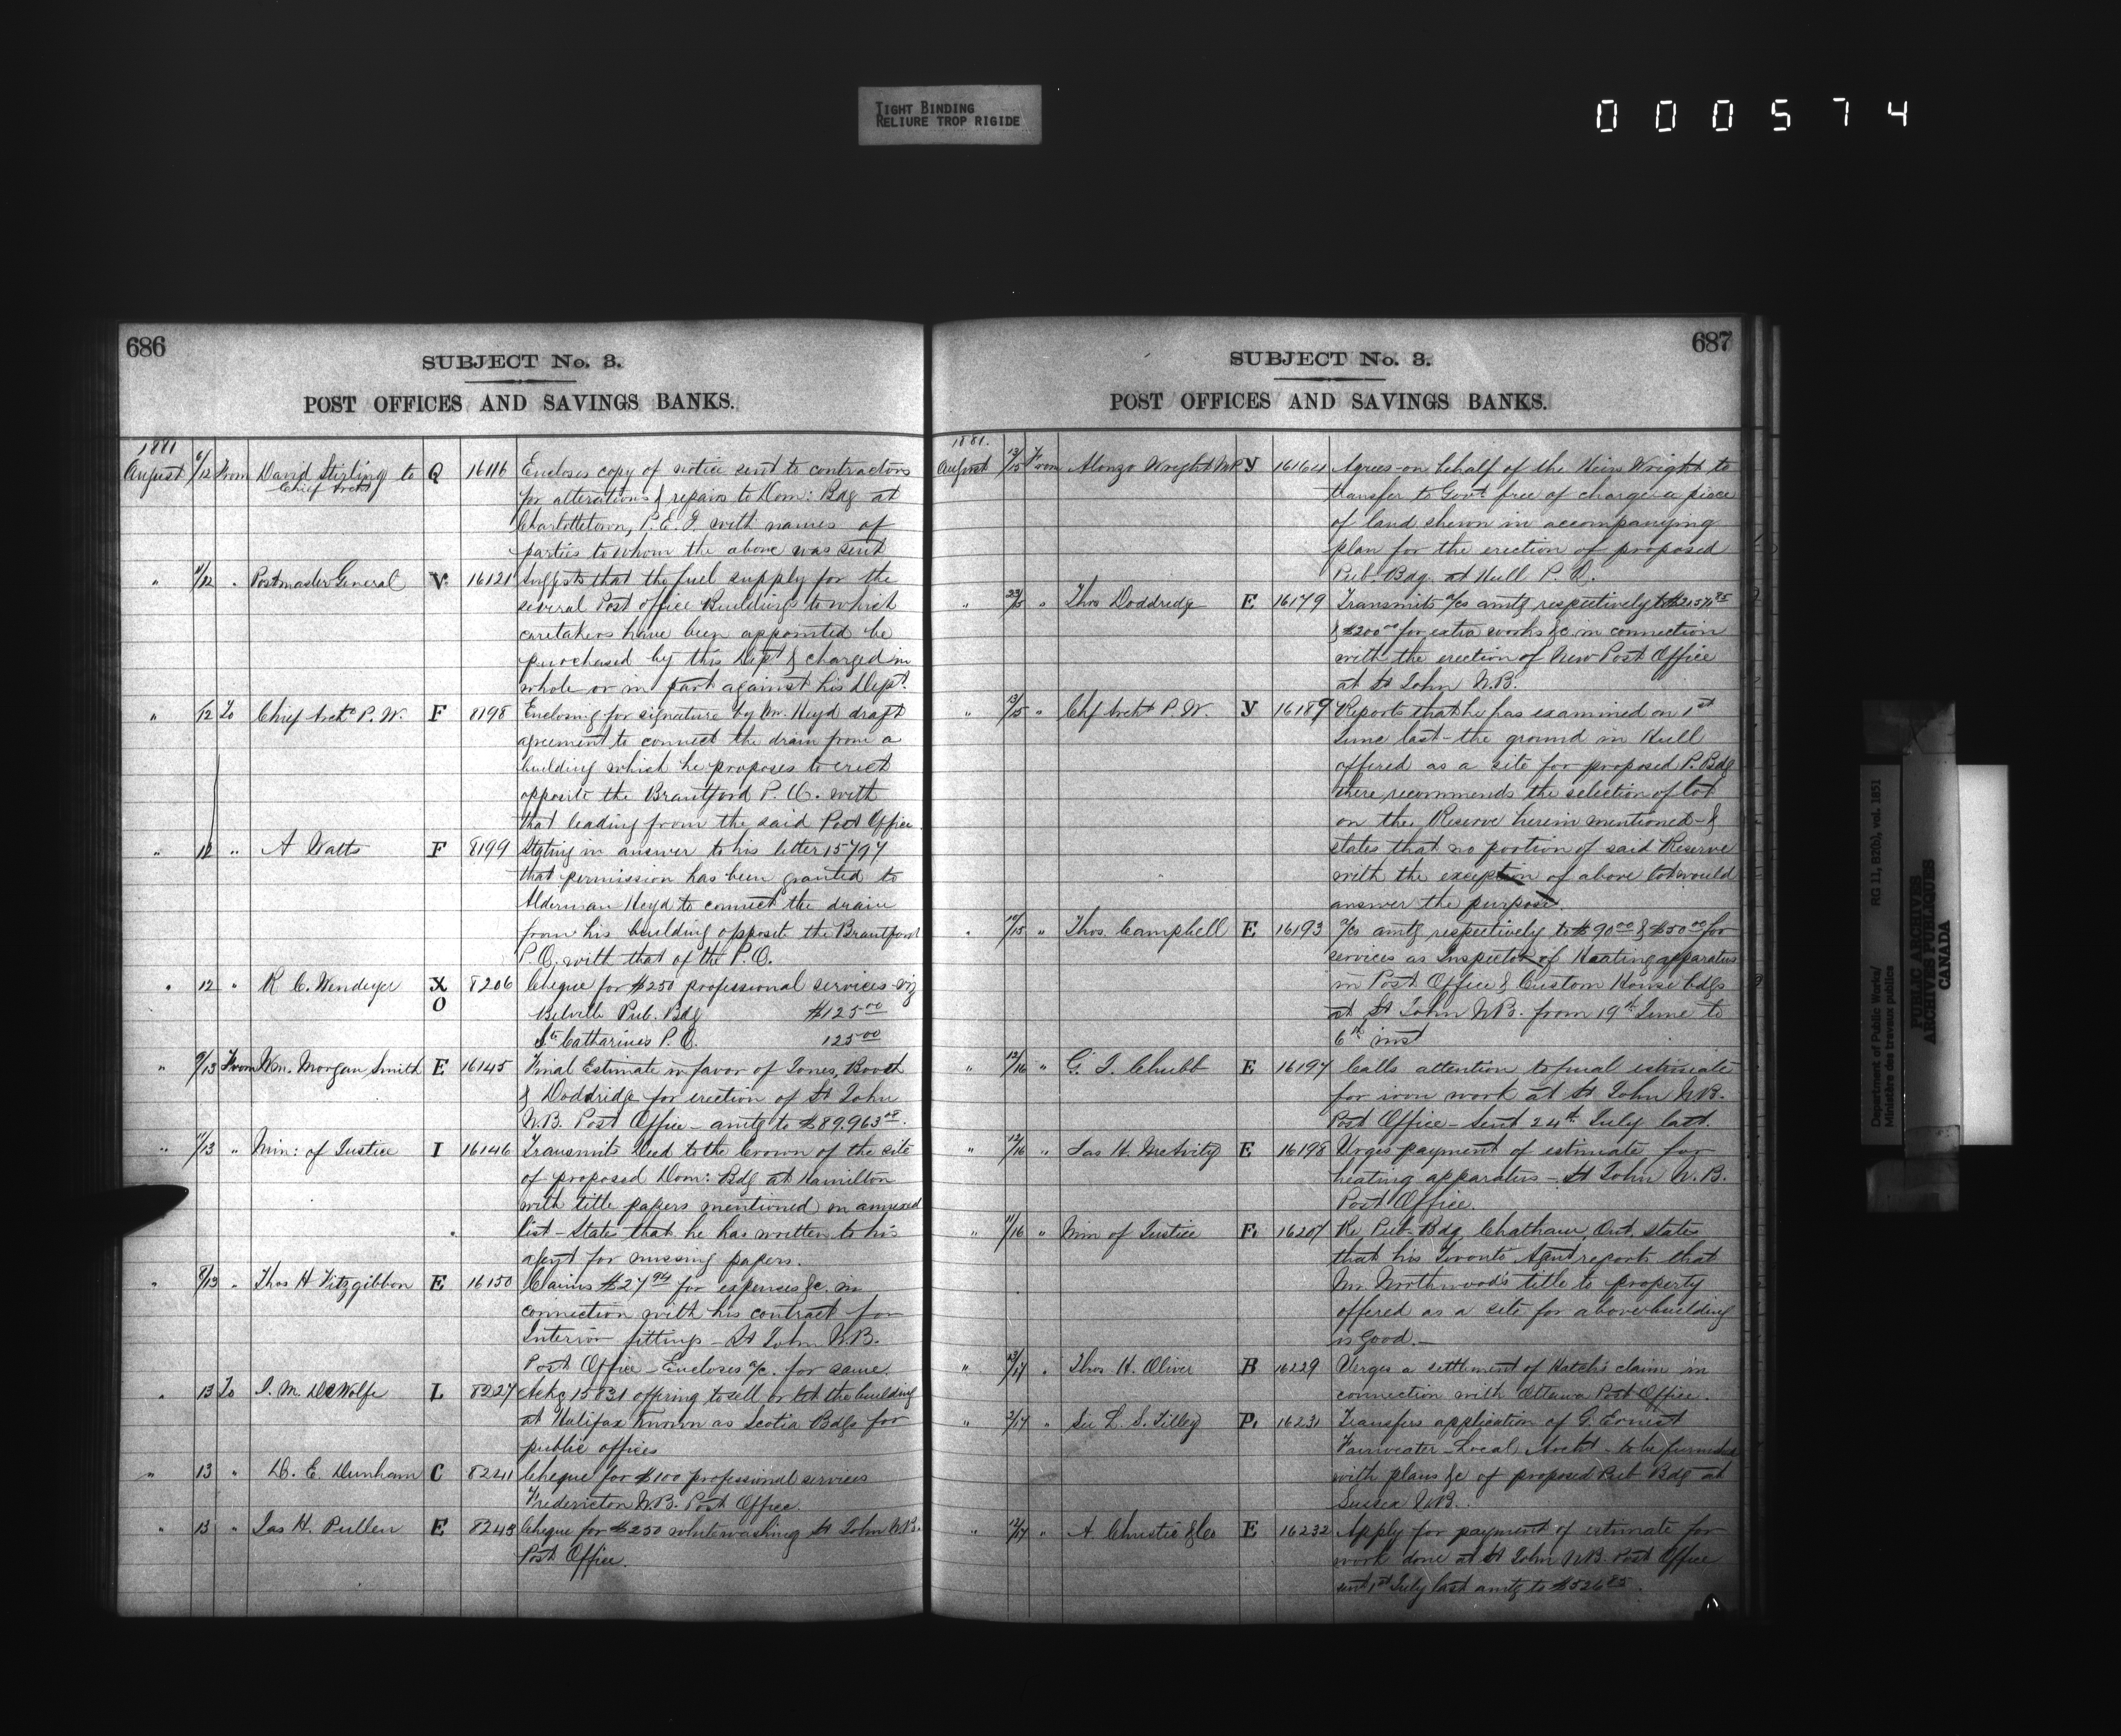 TIGHT BINDING
RELIURE TROP RIGIDE
000574
686
SUBJECT No. 3.
POST OFFICES AND SAVINGS BANKS.
1881
August 6/12 From David Stirling to Q 16116 Encloses copy of notice sent to contractors
Chief Archt
for alterations & repairs to Dom: Bdg at
Charlottetown, P.E.I. with names of
parties to whom the above was sent
" 11/12 " Postmaster General V. 16121 Suggests that the fuel supply for the
several Post office Buildings to which
caretakers have been appointed be
purchased by this Dept & charged in
whole or in part against his Dept.
" /12 To Chief Archt P.W. F 8198 Enclosing for signature by Mr. Heyd draft
agreement to connect the drain from a
building which he proposes to erect
opposite the Brantford P.O. with
that leading from the said Post Office.
" 12 " A Watts F 8199 Stating in answer to his letter 15797
that permission has been granted to
Alderman Heyd to connect the drain
from his building opposite the Brantford
P.O. with that of the P.O.
" 12 " R C. Windeyer X 8206 Cheque for $250 professional services viz
O Belville Pub. Bdg $125 00
St Catharines P.O. 125 00
" 9/13 From Wm. Morgan Smith E 16145 Final Estimate in favor of Jones, Booth
& Doddridge for erection of St John
N.B. Post Office - amtg to $89,963
" 11/13 " Min: of Justice I 16146 Transmits Deed to the Crown of the site
of proposed Dom: Bdg at Hamilton
with title papers mentioned in annexed
list - States that he has written to his
agent for missing papers.
" 8/13 " Thos H Fitzgibbon E 16150 Claims $27 94 for expenses &c. in
connection with his contract for
Interior fittings - St John N.B.
Post Office - Encloses a/c. for same.
" 13 To J. M. DeWolfe L 8227 Ackg 15831 offering to sell or let the building
at Halifax known as Scotia Bdgs for
public offices
" 13 " D. E. Dunham C 8241 Cheque for $100 professional services
Fredericton N.B. Post Office.
" 13 " Jas H. Pullen E 8243 Cheque for $250 whitewashing St John N.B.
Post Office.
687
SUBJECT No. 3.
POST OFFICES AND SAVINGS BANKS.
1881.
August 13/15 From Alonzo Wright M.P. Y 16164 Agrees on behalf of the Heirs Wright to
transfer to Govt free of charge a piece
of land shewn in accompanying
plan for the erection of proposed
Pub. Bdg. at Hull P.Q.
" " Thos Doddridge E 16179 Transmits a/cs amtg respectively to
& $200 00 for extra works &c. in connection
with the erection of New Post Office
at St John N.B.
" 13/15 " Chf Archt P.W. Y 16189 Reports that he has examined on 1st
June last - the ground in Hull
offered as a site for proposed P. Bdg
there recommends the selection of lot
on the Reserve herein mentioned - &
states that no portion of said Reserve
with the exception of above lot would
answer the purpose.
" 12/15 " Thos. Campbell E 16193 a/cs amtg respectively to $90 00 & $50 00 for
services as Inspector of Heating apparatus
in Post Office & Custom House bdgs
at St John N.B. from 19th June to
6th inst
" 12/16 " G. T. Chubb E 16197 Calls attention to final estimate
for iron work at St John N.B.
Post Office - Sent 24th July last.
" 12/16 " Jas H. McAvity E 16198 Urges payment of estimate for
heating apparatus - St John N.B.
Post Office.
" 11/16 " Min of Justice F. 16207 Re Pub. Bdg Chatham, Ont. states
that his Toronto Agent reports that
Mr. Northwood's title to property
offered as a site for above building
is good. -
" 13/17 " Thos. H. Oliver B 16229 Urges a settlement of Hatch's claim in
connection with Ottawa Post Office.
" 2/17 " Sir L. S. Tilley P. 16231 Transfers application of G. Ernest
Fairweather - Local Archt - to be furnished
with plans &c of proposed Pub Bdg at
Sussex N.B.
" 12/17 " A. Christie & Co E 16232 Apply for payment of estimate for
work done at St John N.B. Post Office
sent 1st July last amtg to $526 85.
Department of Public Works/ RG 11, B2(b), vol. 1851
Ministère des travaux publics
PUBLIC ARCHIVES
ARCHIVES PUBLIQUES
CANADA